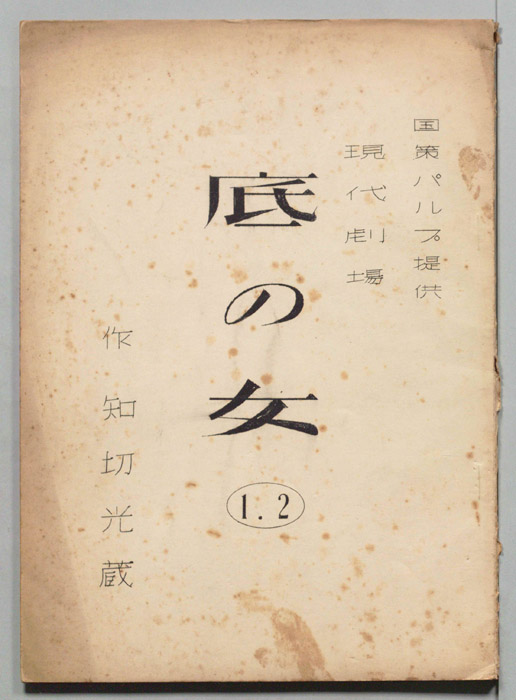 国策パルプ提供
現代劇場
底の女
1.2
作 知切光蔵